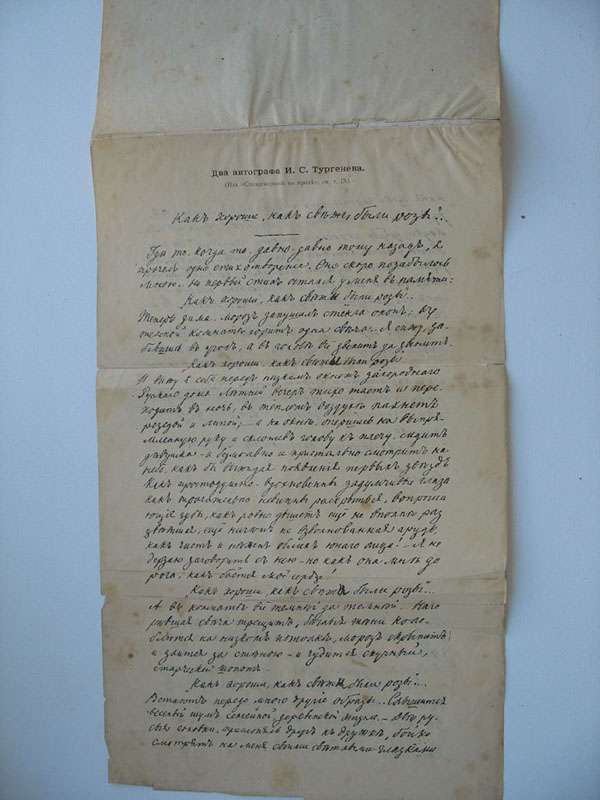 Два автографа И. С. Тургенева.
(Изъ «Стихотвореній въ прозѣ», см. т. IX)
Какъ хороши, какъ свѣжи были розы...
Гдѣ то, когда то, давно-давно тому назадъ, я
прочелъ одно стихотвореніе. Оно скоро позабылось
мною, но первый стихъ остался у меня въ памяти:
Какъ хороши, какъ свѣжи были розы...
Теперь зима, морозъ запушилъ стёкла оконъ; въ
комнатѣ горитъ одна свѣча. Я сижу, за-
бившись въ уголъ, а въ головѣ всё звенитъ да звенитъ.
Какъ хороши, какъ свѣжи были розы...
И вижу я себя передъ низкимъ окномъ загороднаго
Русскаго дома. Лѣтній вечеръ тихо таетъ и пере-
ходитъ въ ночь, въ тепломъ воздухѣ пахнетъ
резедой и липой; — и на окнѣ, опершись на выпря-
мленную руку и склонивъ голову къ плечу, сидитъ
дѣвушка — и безмолвно и пристально смотритъ на
небо, какъ бы выжидая появленія первыхъ звѣздъ
Какъ простодушно-вдохновенны задумчивые глаза
какъ трогательно невинны раскрытыя, вопроша-
ющія губы, какъ ровно дышетъ ещё не вполнѣ рас-
цвѣтшая, ещё ничѣмъ не взволнованная грудь
какъ чистъ и нѣженъ обликъ юнаго лица! — Я не
дерзаю заговорить съ нею — но какъ она мнѣ до-
рога, какъ бьётся моё сердце!
Какъ хороши, какъ свѣжи были розы...
А въ комнатѣ всё темнѣй да темнѣй. Наго-
рѣвшая свѣча трещитъ, бѣглыя тѣни коле-
блются на низкомъ потолкѣ, морозъ скрыпитъ
и злится за стѣною — и чудится скучный,
старческій шопотъ
Какъ хороши, какъ свѣжи были розы...
Встаютъ передо мною другіе образы... Слышится
весёлый шумъ семейной, деревенской жизни. — Двѣ ру-
сыя головки, прислонясь другъ къ дружкѣ, бойко
смотрятъ на меня своими свѣтлыми глазками